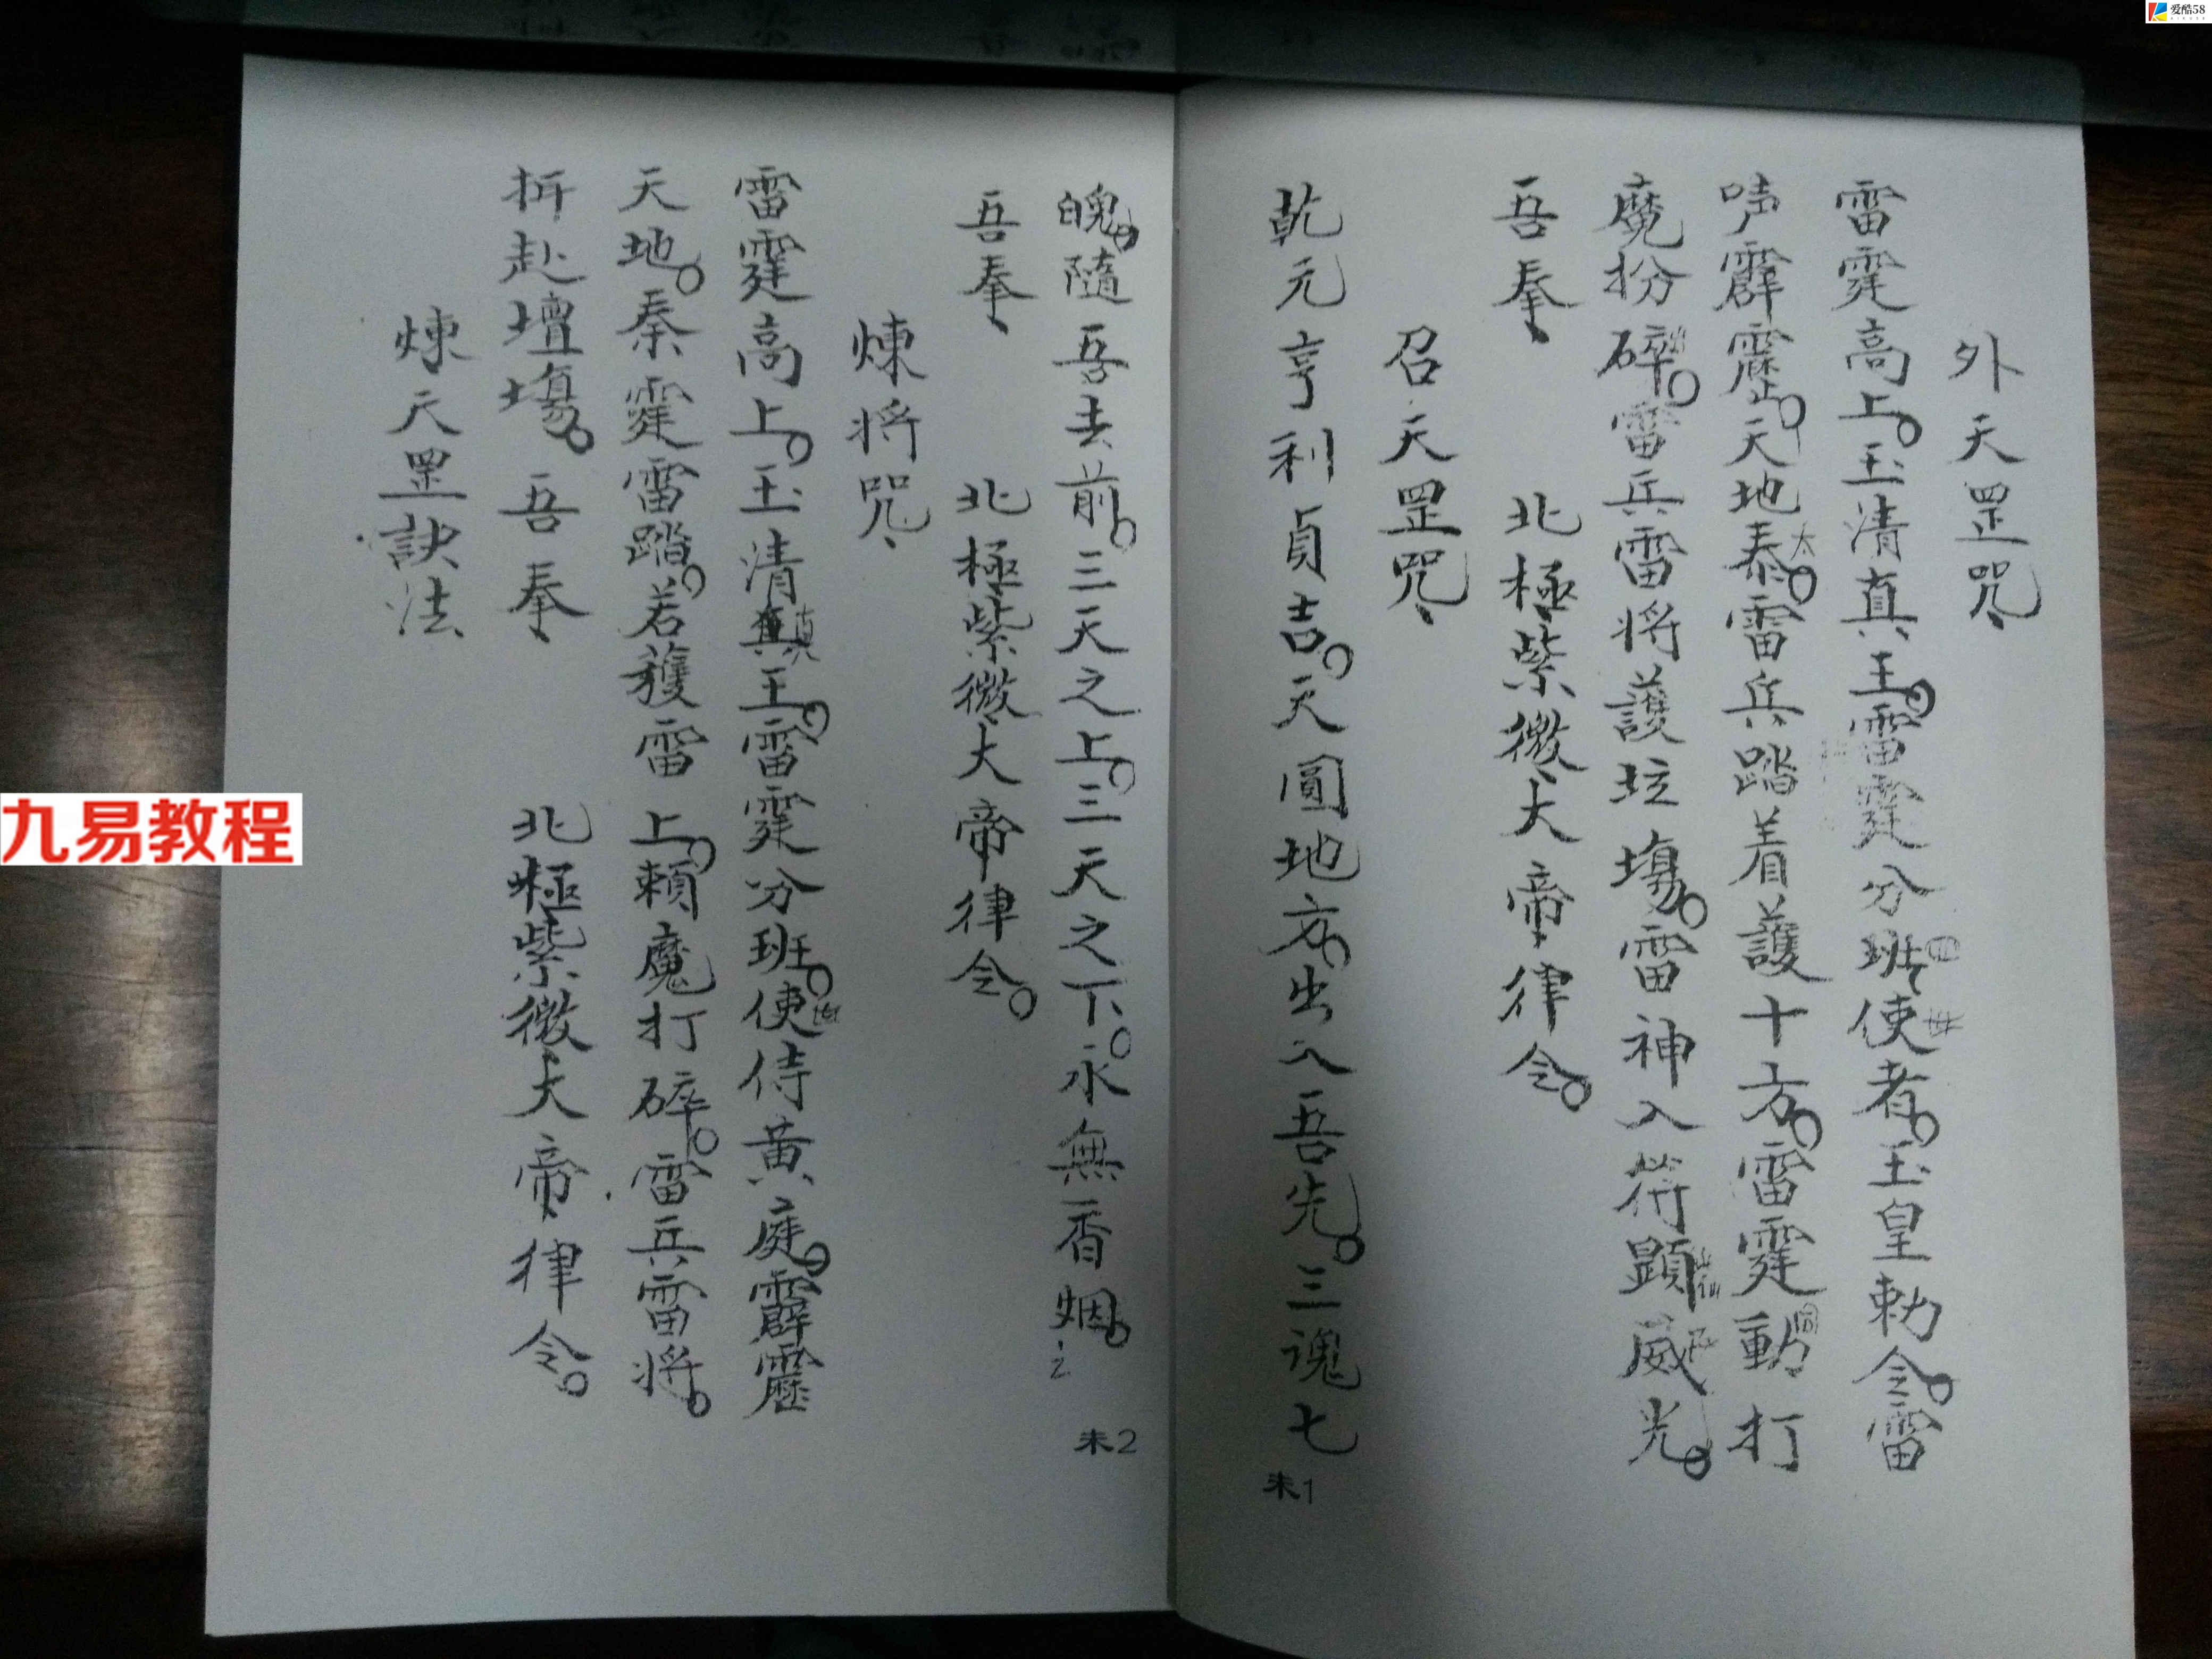 外天罡咒
雷霆高上。玉清真王。雷霆分班使者。玉皇勅令。雷
吉霹靂。天地泰。雷兵踏着護十方。雷霆動打
魔扮碎。雷兵雷将護坛塲。雷神入符顕威光。
吾奉 北極紫微大帝律令。
召天罡咒
乾元亨利貞吉。天圓地方。出入吾先。三魂七
朱1
魄。隨吾去前。三天之上。三天之下。永無香烟。之
吾奉 北極紫微大帝律令。
煉将咒
雷霆高上。玉清真王。雷霆分班。使侍黃庭。霹靂
天地。秦霆雷踏。若獲雷上。賴魔打碎。雷兵雷将。
折赴壇塲。吾奉 北極紫微大帝律令。
煉天罡訣法
朱2
九易教程
爱酷58